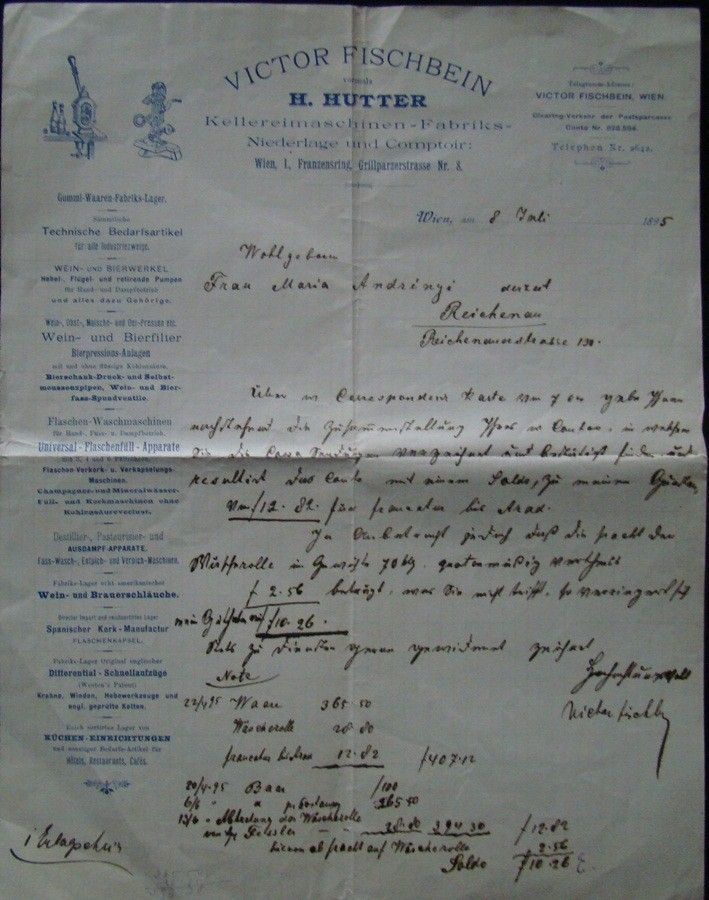 VICTOR FISCHBEIN
vormals
H. HUTTER
Kellereimaschinen-Fabriks-
Niederlage und Comptoir:
Wien, I., Franzensring, Grillparzerstrasse Nr. 8.
Telegramm-Adresse:
VICTOR FISCHBEIN, WIEN.
Clearing-Verkehr der Postsparcasse
Conto Nr. 828.504.
Telephon Nr. 2642.
Gummi-Waaren-Fabriks-Lager.
Sämmtliche
Technische Bedarfsartikel
für alle Industriezweige.
WEIN- UND BIERWERKEL
Hebel-, Flügel- und rotirende Pumpen
für Hand- und Dampfbetrieb
und alles dazu Gehörige.
Wein-, Obst-, Maische- und Oel-Pressen etc.
Wein- und Bierfilter
Bierpressions-Anlagen
mit und ohne flüssige Kohlensäure,
Bierschank-Druck- und Selbst-
moussenzpipen, Wein- und Bier-
fass-Spundventile.
Flaschen-Waschmaschinen
für Hand-, Fuss- u. Dampfbetrieb.
Universal-Flaschenfüll-Apparate
Flaschen-Verkork- u. Verkapselungs-
Maschinen.
Champagner- und Mineralwässer-
Füll- und Korkmaschinen ohne
Kohlensäureverlust.
Destillier-, Pasteurisier- und
AUSDAMPF-APPARATE.
Fass-Wasch-, Entpich- und Verpich-Maschinen.
Fabriks-Lager echt amerikanischer
Wein- und Brauerschläuche.
Director Import und reichsortirtes Lager
Spanischer Kork-Manufactur
FLASCHENKAPSEL.
Fabriks-Lager Original englischer
Differential-Schnellaufzüge
(Weston's Patent)
Krahne, Winden, Hebewerkzeuge und
engl. geprüfte Ketten.
Reich sortirtes Lager von
KÜCHEN-EINRICHTUNGEN
und sonstiger Bedarfs-Artikel für
Hôtels, Restaurants, Cafés.
Wien, am 8 Juli 1895
Wohlgeboren
Frau Maria Andrényi derzeit
Reichenau
Reichenauerstrasse 130.
Über Correspondenz Karte vom 7
nachstehend die Zusammenstellung Conto, in welchem
Sie die verzeichnet und bestätigt finden und
resultirt das Conto mit einem Saldo, zu meinen Gunsten
von f 12.82. für franco bis Arad.
jedoch daß die Fracht der
Wäscherolle im Gewichte 70 Kg.
f 2.56 beträgt, was Sie
mein Guthaben auf f 10.26.
Stets zu Diensten gerne gewidmet zeichnet
Hochachtungsvoll
Victor Fischbein
Note
22/4 95 Waare 365.50
Wäscherolle 28.80
12.82 f 407.12
20/4 95 Baar f 100
6/5 " 265.50
13/6 " der Wäscherolle
28.80 394.30 f 12.82
hievon ab Fracht auf Wäscherolle 2.56
Saldo f 10.26
1 Erlagschein